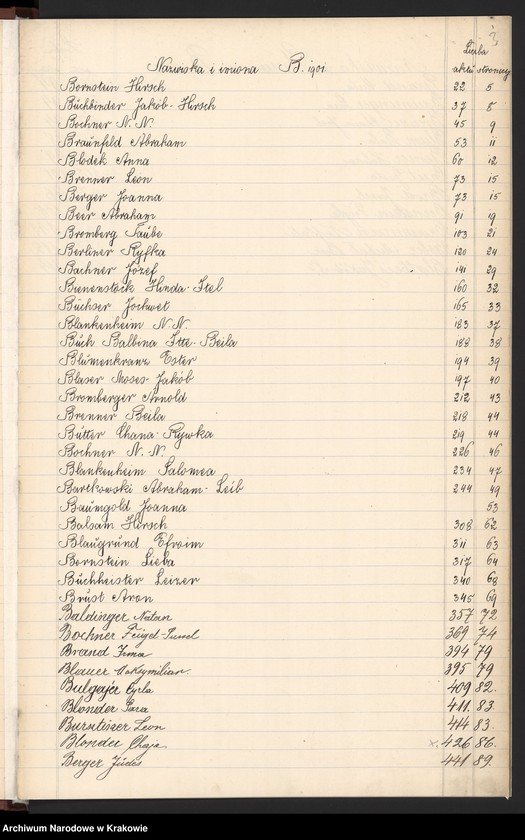 3
Liczba
Nazwiska i imiona B. 1901. aktu stronicy
Bornstein Hirsch 22 5
Büchbinder Jakób-Hirsch 37 8
Bochner N. N. 45 9
Braünfeld Abraham 53 11
Blodek Anna 60 12
Brenner Leon 73 15
Berger Joanna 73 15
Beer Abraham 91 19
Bromberg Taübe 103 21
Berliner Ryfka 120 24
Bachner Józef 141 29
Bienenstock Hinda-Itel 160 32
Büchser Jochwet 165 33
Blankenheim N. N. 183 37
Büch Balbina Itte-Beila 188 38
Blümenkranz Ester 194 39
Blaser Moses-Jakób 197 40
Bromberger Arnold 212 43
Brenner Beila 218 44
Bütter Chana-Rywka 219 44
Bochner N. N. 226 46
Blankenheim Salomea 234 47
Bartkowski Abraham-Leib 244 49
Baümgold Joanna 53
Balsam Hirsch 308 62
Blaugründ Efroim 311 63
Bornstein Lieba 317 64
Büchheister Leizer 340 68
Brüst Aron 345 69
Baldinger Natan 357 72
Bochner Feigel 369 74
Brand Irma 394 79
Blauer Maksymilian. 395 79
Cyrla 409 82.
Blonder Sara 411 83.
Leon 414 83.
Blonder Chaja x. 426 86.
Berger Judes 441 89.
Archiwum Narodowe w Krakowie